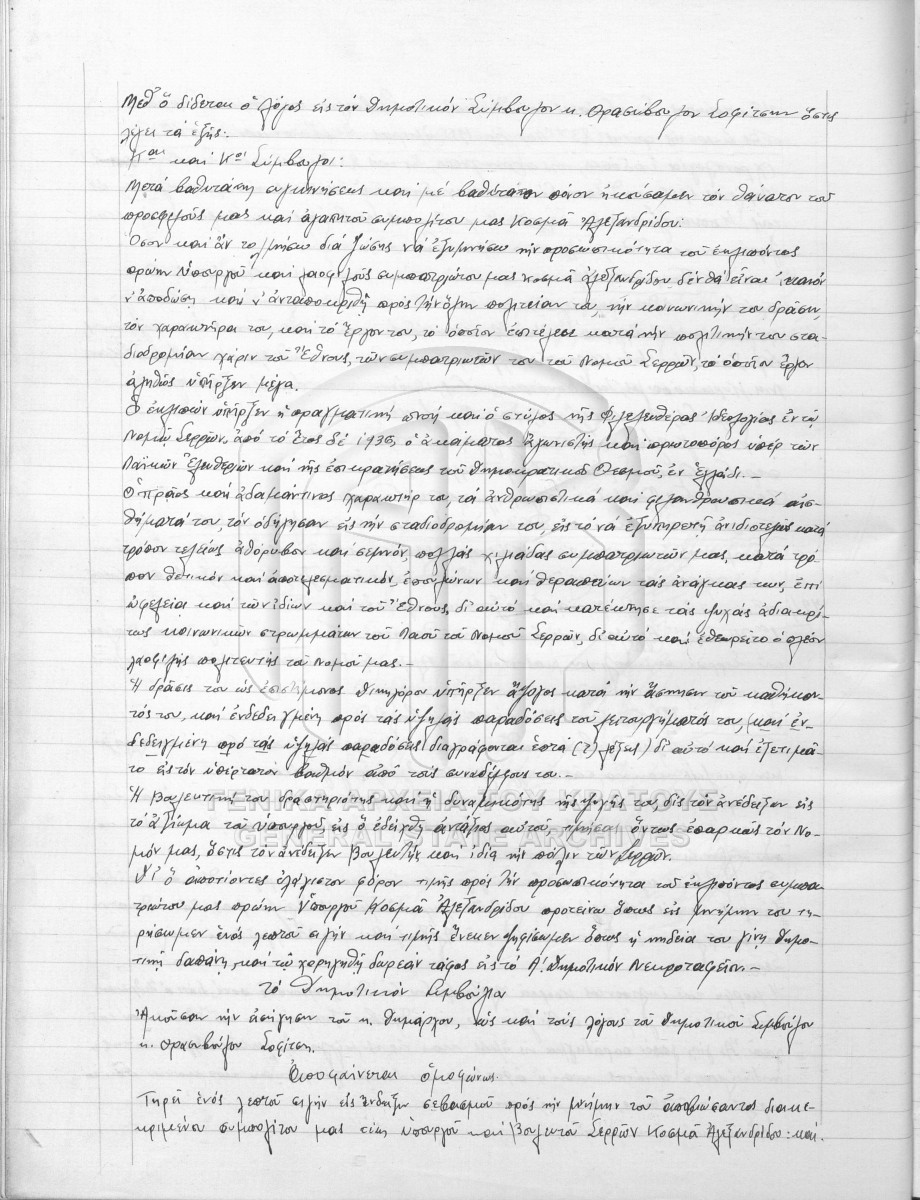 Μεθ' ὅ δίδεται ὁ λόγος εἰς τόν Δημοτικόν Σύμβουλον κ. Θρασύβουλον Σοφίτσην ὅστις
λέγει τά ἑξῆς:
Κοαι καί Κοι Σύμβουλοι:
Μετά βαθυτάτης συγκινήσεως καί μέ βαθύτατον πόνον ἠκούσαμεν τόν θάνατον τοῦ
προσφιλοῦς μας καί ἀγαπητοῦ συμπολίτου μας Κοσμᾶ Ἀλεξανδρίδου:
Ὅσον καί ἄν τολμήσω διά ζώσης νά ἐξυμνήσω τήν προσωπικότητα τοῦ ἐκλιπόντος
πρώην Ὑπουργοῦ καί λαοφιλοῦς συμπατριώτου μας Κοσμᾶ Ἀλεξανδρίδου δέν θά εἶναι ἱκανόν
ν' ἀποδώσῃ καί ν' ἀνταποκριθῇ πρός τήν ὅλην πολιτείαν του, τήν κοινωνικήν του δρᾶσιν,
τόν χαρακτῆρα του, καί τό ἔργον του, τό ὁποῖον ἐπετέλεσε κατά τήν πολιτικήν του στα-
διοδρομίαν χάριν τοῦ Ἔθνους, τῶν συμπατριωτῶν του τοῦ Νομοῦ Σερρῶν, τό ὁποῖον ἔργον
ἀληθῶς ὑπῆρξεν μέγα.
Ὁ ἐκλιπών ὑπῆρξεν ἡ πραγματική πνοή καί ὁ στῦλος τῆς Φιλελευθέρας Ἰδεολογίας ἐν τῷ
Νομῷ Σερρῶν, ἀπό τό ἔτος δέ 1935, ὁ ἀκάματος ἀγωνιστής καί πρωτοπόρος ὑπέρ τῶν
Λαϊκῶν Ἐλευθεριῶν καί τῆς ἐπικρατήσεως τοῦ Δημοκρατικοῦ Θεσμοῦ, ἐν Ἑλλάδι.-
Ὁ πρᾶος καί ἀδαμάντινος χαρακτήρ του, τά ἀνθρωπιστικά καί φιλανθρωπικά αἰσ-
θήματά του, τόν ὁδήγησαν εἰς τήν σταδιοδρομίαν του, εἰς τό νά ἐξυπηρετῇ ἀνιδιοτελῶς κατά
τρόπον τελείως ἀθόρυβον καί σεμνόν, πολλάς χιλιάδας συμπατριωτῶν μας, κατά τρό-
πον θετικόν καί ἀποτελεσματικόν, ἐπουλώνων καί θεραπεύων τάς ἀνάγκας των, ἐπί
ὠφελείᾳ καί τῶν ἰδίων καί τοῦ Ἔθνους, δι' αὐτό καί κατέκτησε τάς ψυχάς ἀδιακρί-
τως κοινωνικῶν στρωμμάτων τοῦ Λαοῦ τοῦ Νομοῦ Σερρῶν, δι' αὐτό καί ἐθεωρεῖτο ὁ πλέον
λαοφιλής πολιτευτής τοῦ Νομοῦ μας.-
Ἡ δρᾶσις του ὡς ἐπιστήμονος Δικηγόρου ὑπῆρξεν ἄψογος κατά τήν ἄσκησιν τοῦ καθήκον-
τός του, καί ἐνδεδειγμένη πρός τάς ὑψηλάς παραδόσεις τοῦ λειτουργήματός του, (καί ἐν-
δεδειγμένη πρό τάς ὑψηλάς παραδόσεις διαγράφονται ἑπτά (7) λέξεις) δι' αὐτό καί ἐξετιμᾶ-
το εἰς τόν ὑπέρτατον βαθμόν ἀπό τούς συναδέλφους του.-
Ἡ Βουλευτική του δραστηριότης καί ἡ δυναμικότης τῆς ψυχῆς του, δίς τόν ἀνέδειξεν εἰς
τό ἀξίωμα τοῦ Ὑπουργοῦ, εἰς ὅ ἐδείχθη ἀντάξιος αὐτοῦ τιμήσας ὄντως ἐπαρκῶς τόν Νο-
μόν μας, ὅστις τόν ἀνέδειξεν Βουλευτήν, καί ἰδίᾳ τήν πόλιν τῶν Σερρῶν.
Δι' ὅ ἀποτίοντες ἐλάχιστον φόρον τιμῆς πρός τήν προσωπικότητα τοῦ ἐκλιπόντος συμπα-
τριώτου μας πρώην Ὑπουργοῦ Κοσμᾶ Ἀλεξανδρίδου προτείνω ὅπως εἰς μνήμην του τη-
ρήσωμεν ἑνός λεπτοῦ σιγήν καί τιμῆς ἕνεκεν ψηφίσωμεν ὅπως ἡ κηδεία του γίνῃ δημο-
τικῇ δαπάνῃ, καί τῷ χορηγηθῇ δωρεάν τάφος εἰς τό Α! Δημοτικόν Νεκροταφεῖον.-
Τό Δημοτικόν Συμβούλιο
Ἀκοῦσαν τήν εἰσήγησιν τοῦ κ. Δημάρχου, ὡς καί τούς λόγους τοῦ Δημοτικοῦ Συμβούλου
κ. Θρασυβούλου Σοφίτση.
Ἀποφαίνεται ὁμοφώνως.
Τηρεῖ ἑνός λεπτοῦ σιγήν εἰς ἔνδειξιν σεβασμοῦ πρός τήν μνήμην τοῦ ἀποβιώσαντος διακε-
κριμένου συμπολίτου μας τέως ὑπουργοῦ καί Βουλευτοῦ Σερρῶν Κοσμᾶ Ἀλεξανδρίδου: καί.
ΓΕΝΙΚΑ ΑΡΧΕΙΑ ΤΟΥ ΚΡΑΤΟΥΣ
GENERAL STATE ARCHIVES